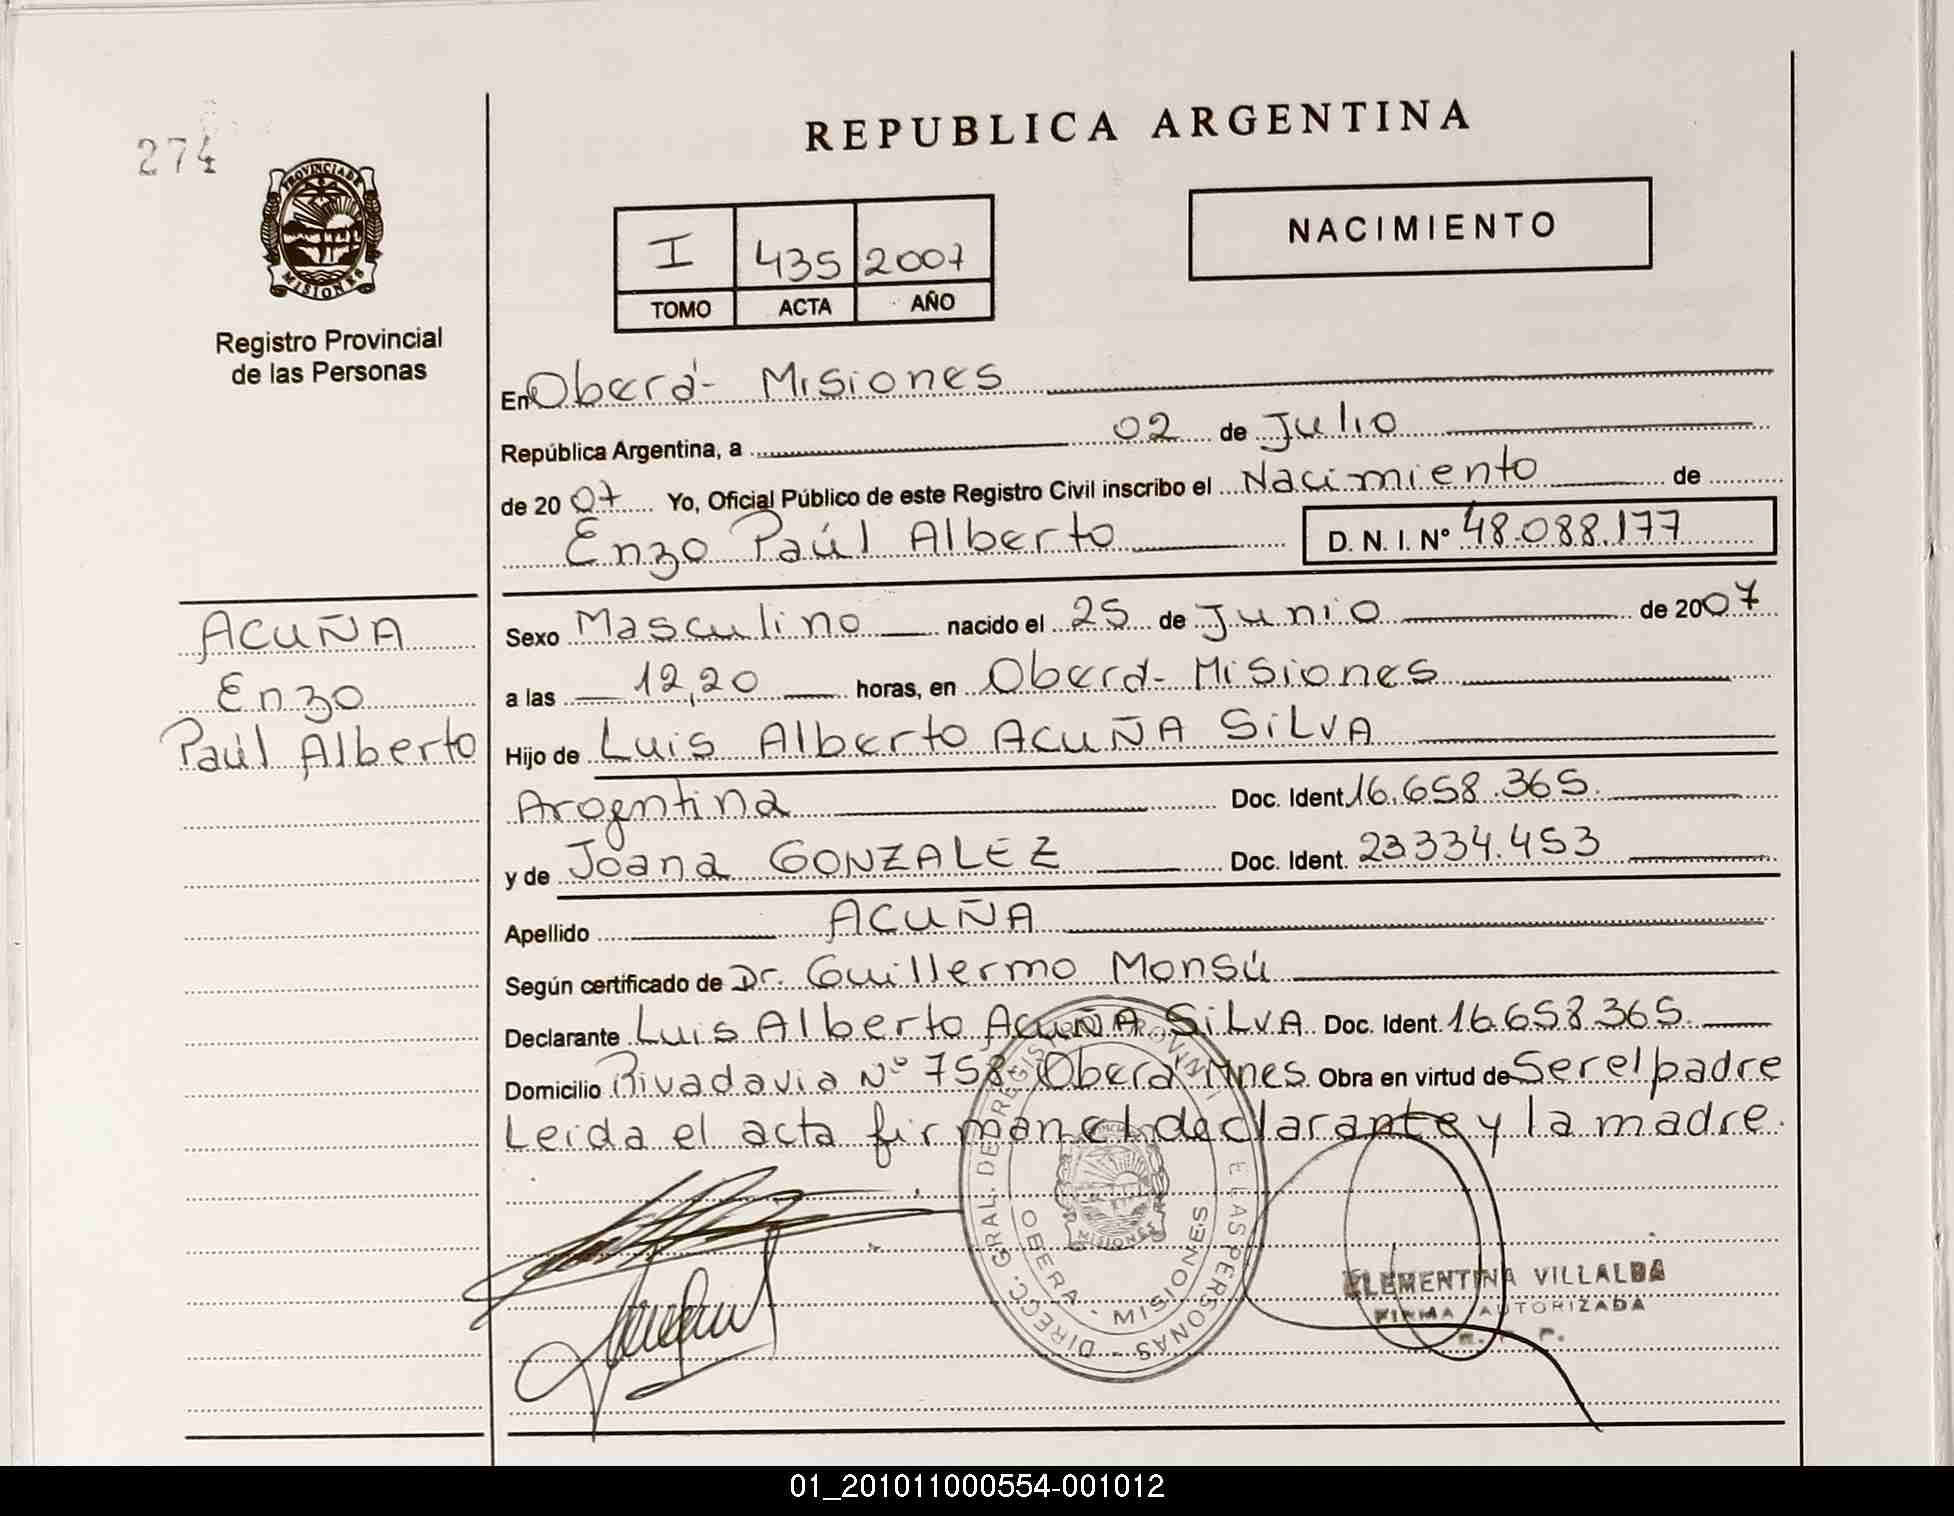 274
PROVINCIA DE
MISIONES
Registro Provincial
de las Personas
REPUBLICA ARGENTINA
I 435 2007
TOMO ACTA AÑO
NACIMIENTO
En Oberá - Misiones
República Argentina, a 02 de Julio
de 20 07 Yo, Oficial Público de este Registro Civil inscribo el Nacimiento de
Enzo Paúl Alberto D. N. I. Nº 48.088.177
ACUÑA
Enzo
Paúl Alberto
Sexo Masculino nacido el 25 de Junio de 2007
a las 12,20 horas, en Oberá - Misiones
Hijo de Luis Alberto ACUÑA SILVA
Argentina Doc. Ident 16.658.365.
y de Joana GONZALEZ Doc. Ident. 23334.453
Apellido ACUÑA
Según certificado de Dr. Guillermo Monsú
Declarante Luis Alberto ACUÑA SILVA Doc. Ident. 16.658.365.
Domicilio Rivadavia Nº 758 Oberá Mnes. Obra en virtud de Ser el padre
Leida el acta firman el declarante y la madre.
DIRECC. GRAL. DE REGISTRO PROVINCI E LAS PERSONAS
OBERA - MISIONES
MISIONES
CLEMENTINA VILLALBA
FIRMA AUTORIZADA
01_201011000554-001012